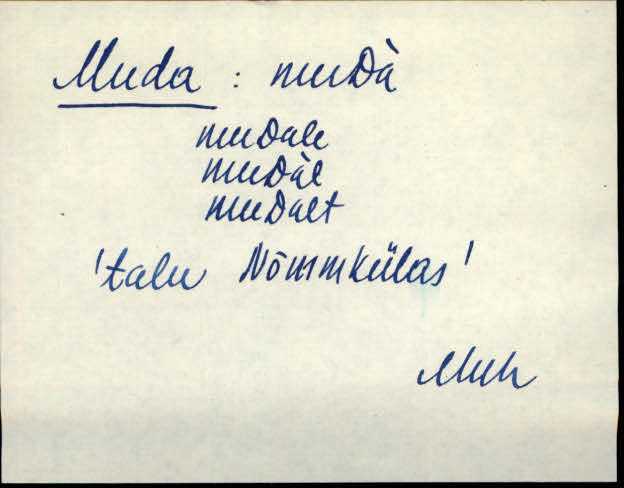 Muda : muDà
muDale
muDàl
muDalt
'talu Nõmmkülas'
Muh